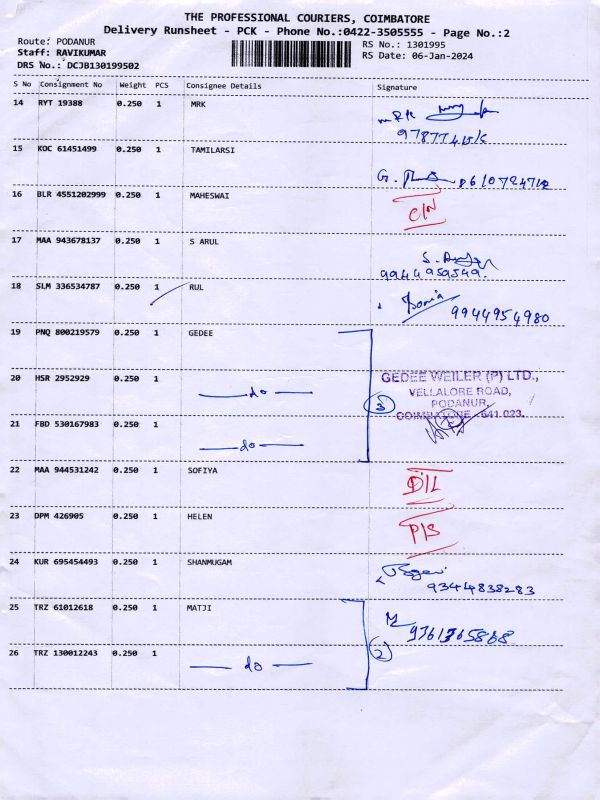 THE PROFESSIONAL COURIERS, COIMBATORE
Delivery Runsheet - PCK - Phone No.:0422-3505555 - Page No.:2
Route: PODANUR
Staff: RAVIKUMAR
DRS No.: DCJB130199502
RS No.: 1301995
RS Date: 06-Jan-2024
S No Consignment No Weight PCS Consignee Details Signature
14 RYT 19388 0.250 1 MRK
15 KOC 61451499 0.250 1 TAMILARSI
G.
16 BLR 4551202999 0.250 1 MAHESWAI
C/N
17 MAA 943678137 0.250 1 S ARUL
S.
9944959549.
18 SLM 336534787 0.250 1 RUL
9944954980
19 PNQ 800219579 1 GEDEE
20 HSR 2952929 0.250 1
do
3
GEDEE WEILER (P) LTD.,
VELLALORE ROAD,
PODANUR,
COIMBATORE - 641 023.
21 FBD 530167983 0.250 1
do
22 MAA 944531242 0.250 1 SOFIYA
D/L
23 DPM 426905 0.250 1 HELEN
P/S
24 KUR 695454493 0.250 1 SHANMUGAM
9344838283
25 TRZ 61012618 0.250 1 MATJI
26 TRZ 130012243 0.250 1
do
2